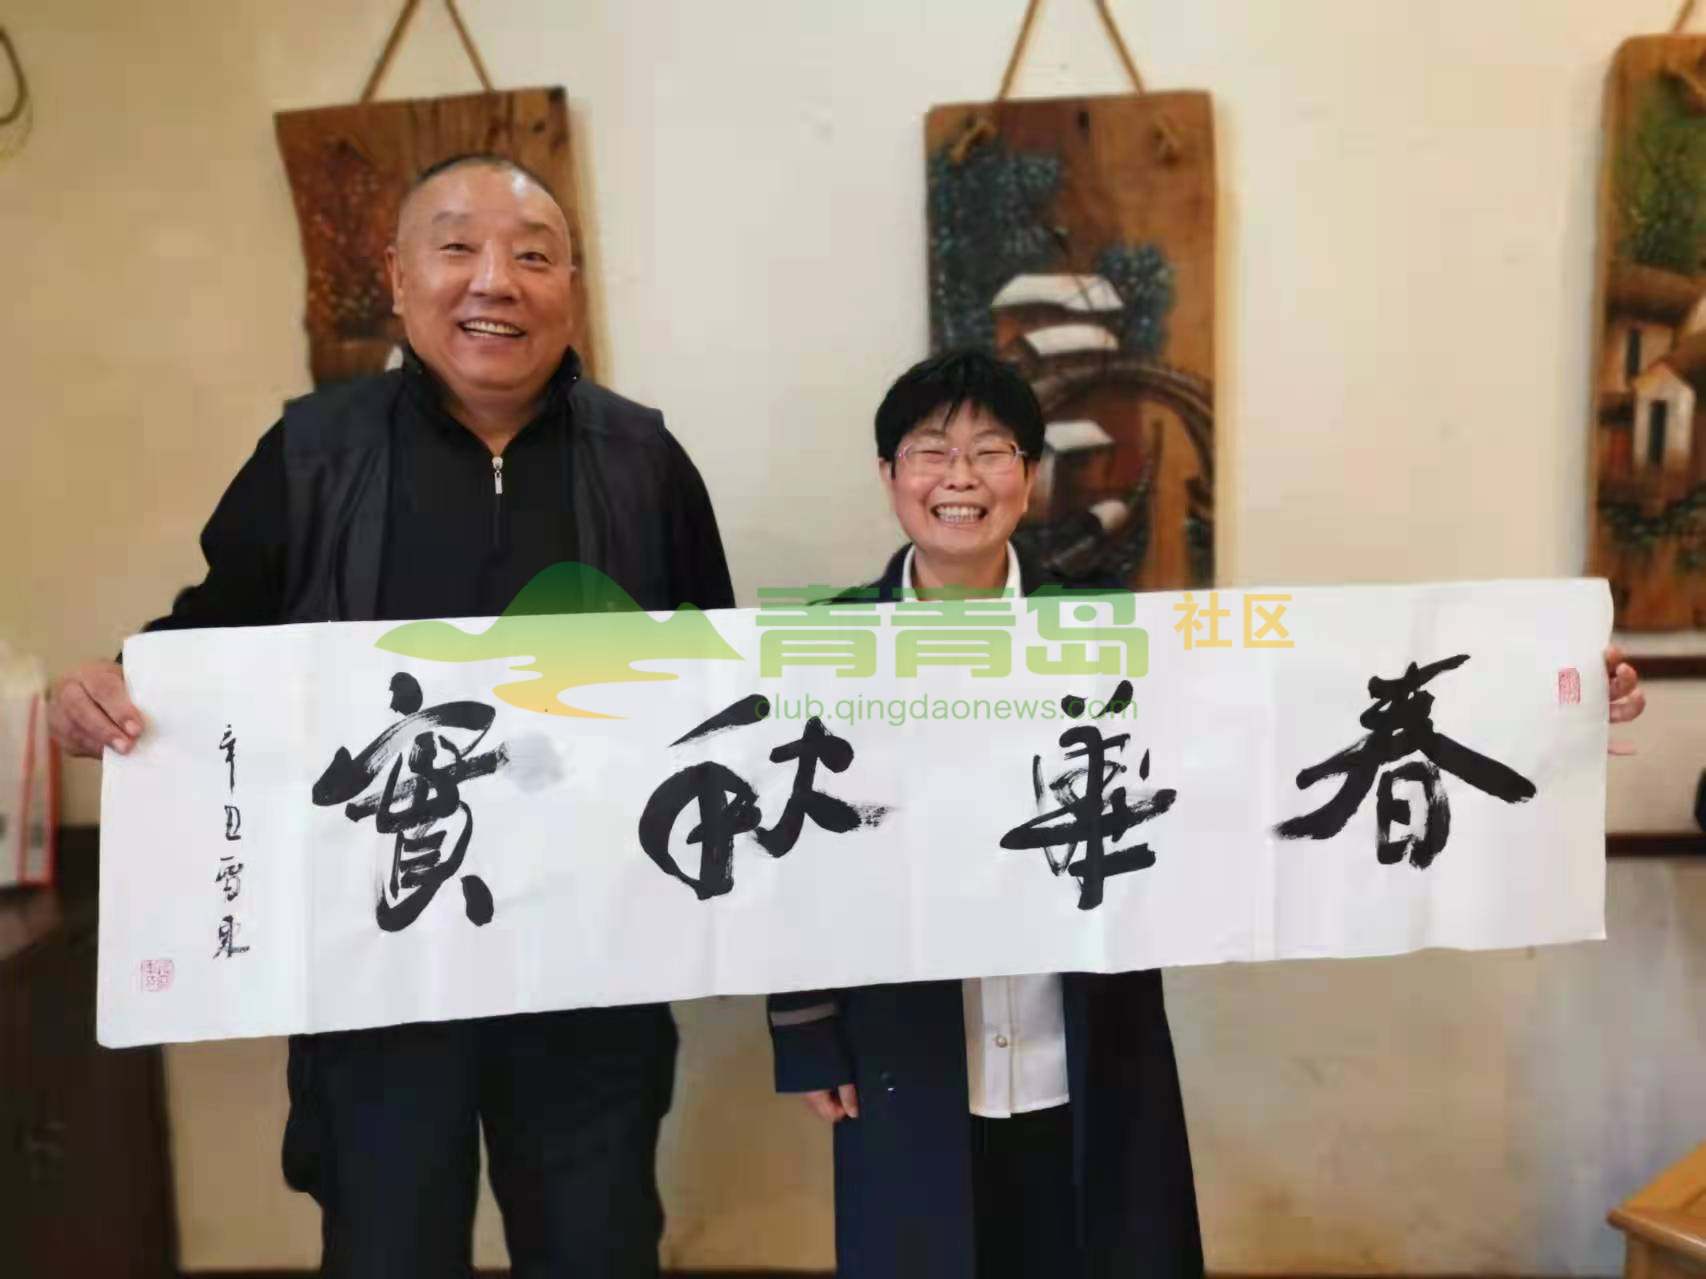 春華秋實
辛丑雪泉
青青岛社区
club.qingdaonews.com